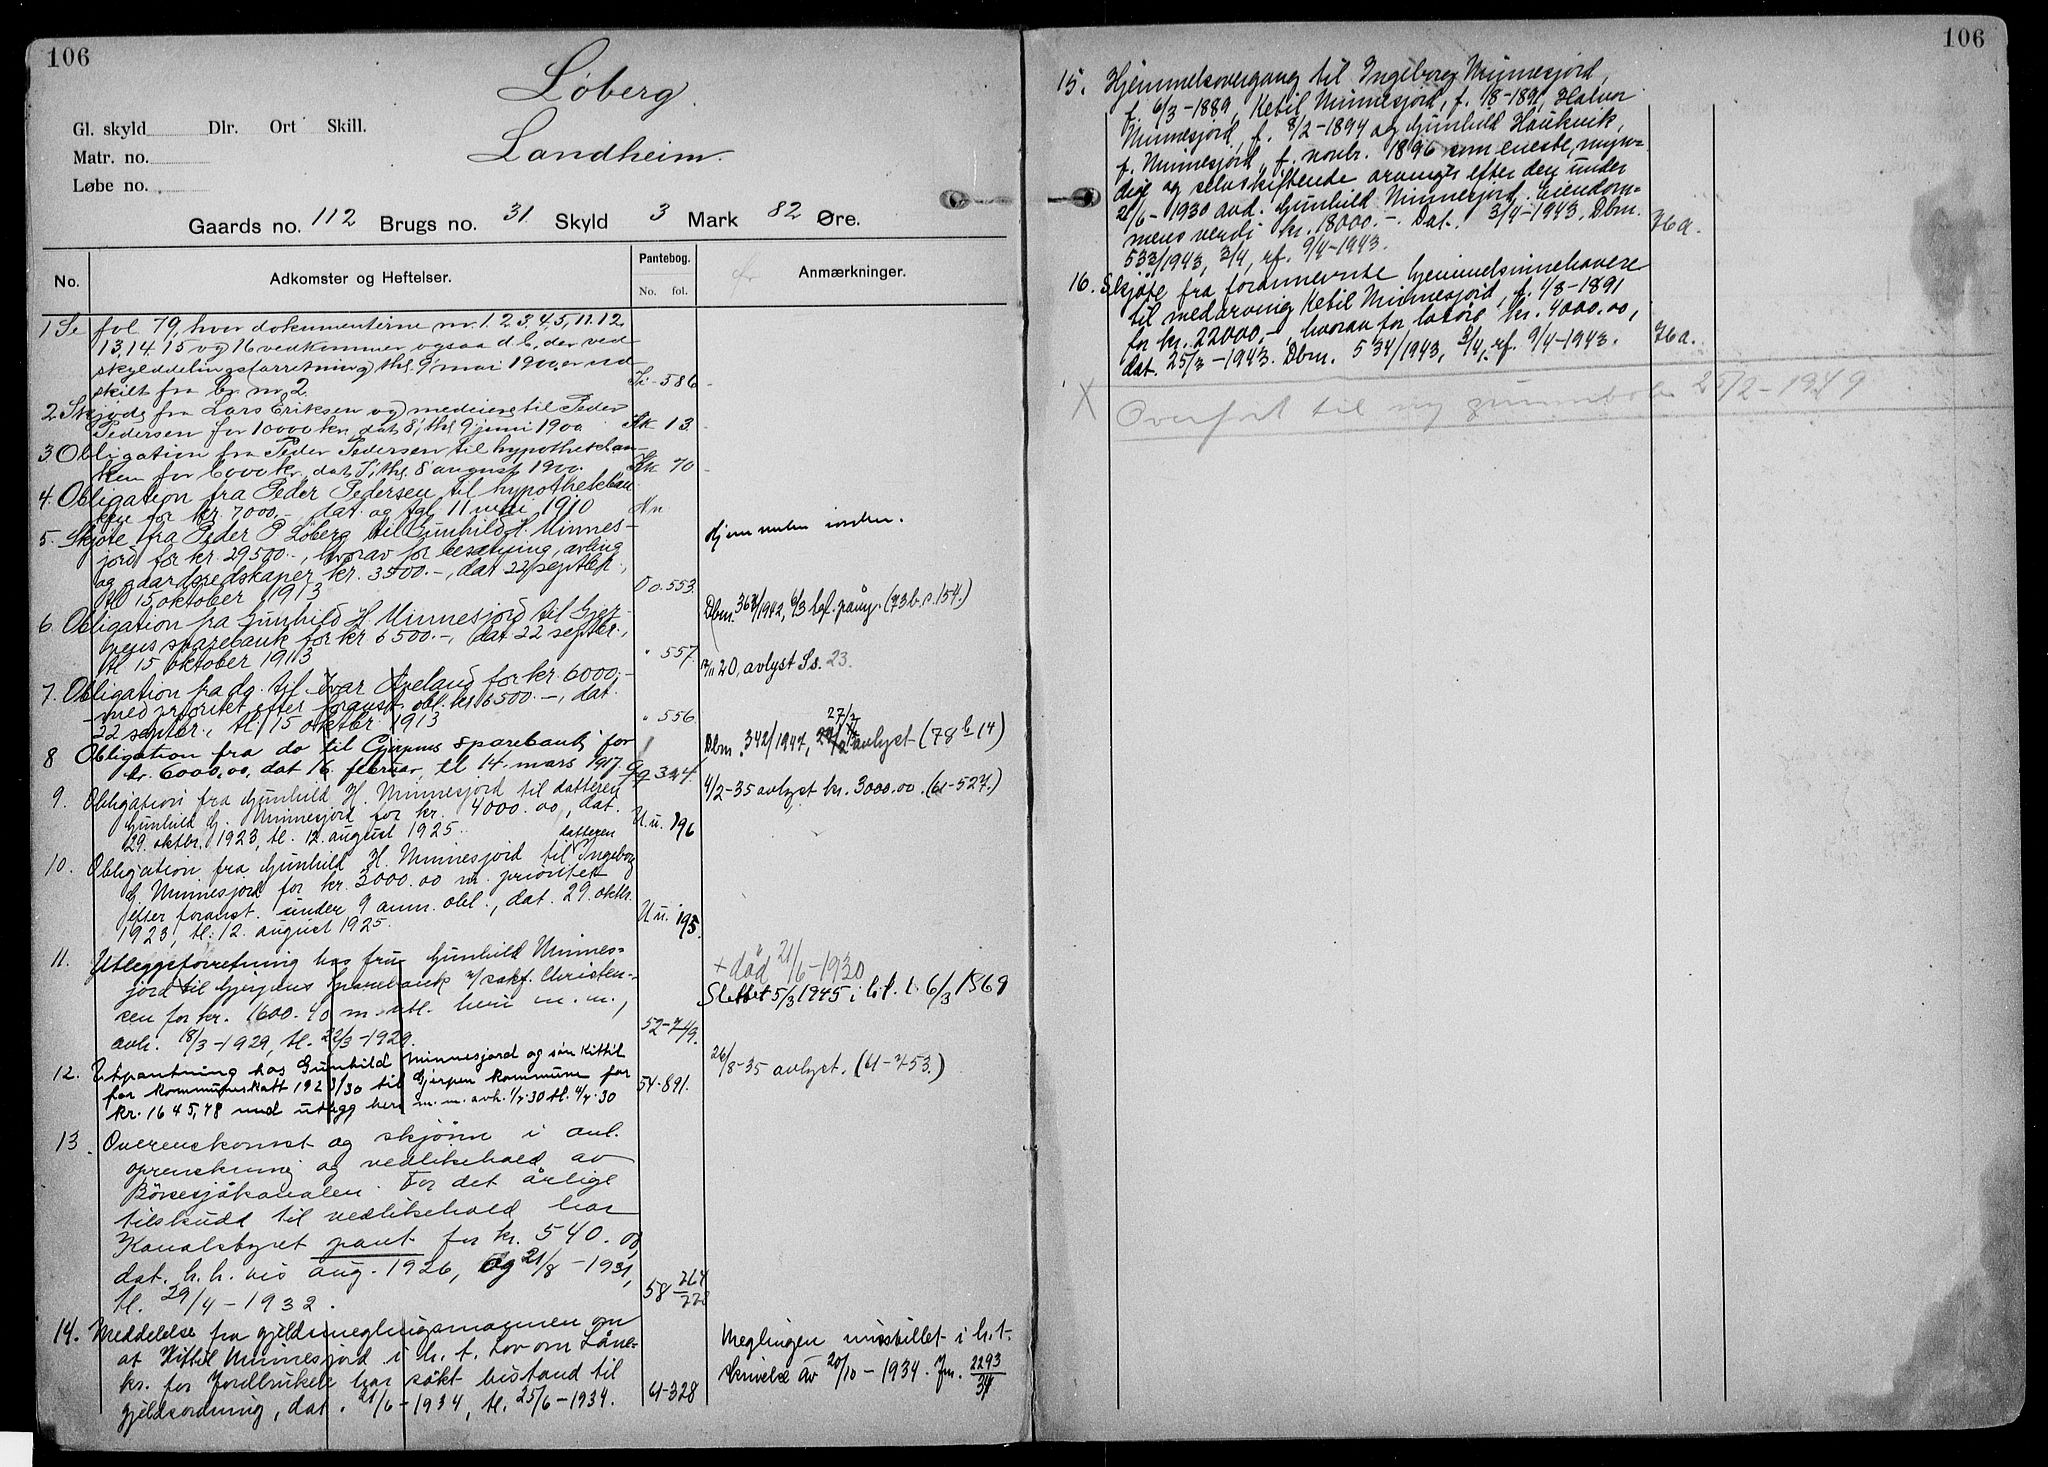 106
Løberg.
Landheim.
Gl. skyld Dlr. Ort Skill.
Matr. no.
Løbe no.
Gaards no. 112 Brugs no. 31 Skyld 3 Mark 82 Øre.
No. Adkomster og Heftelser. Pantebog. No. fol. Anmærkninger.
1 Se fol. 79, hvor dokumenterne nr. 1. 2. 3. 4. 5, 11. 12.
13. 14. 15 og 16 vedkommer ogsaa d. b., der ved
skylddelingsforretning thl. 9 mai 1900, er ud
skilt fra br. nr. 2. - 586
2 Skjøde fra Lars Eriksen og medeiere til Peder
Pedersen for 10000 kr., dat. 8, thl. 9 juni 1900 Kk 13
3. Obligation fra Peder Pedersen til hypothekban
ken for 6000 kr., dat. , thl. 8 august 1900. Kk 70
4. Obligation fra Peder Pedersen til hypothekban
ken for kr. 7000.- dat. og tgl. 11 1910 Nn
5. Skjøte fra Peder P. Løberg til Gunhild H. Minnes-
jord for kr. 29500.-, hvorav for besætning, avling
og gaardsredskaper kr. 3500.-, dat 22 septbr.,
tl 15 oktober 1913 Oo. 553. Hjemmelen iorden.
6. Obligation fra Gunhild H. Minnesjord til Gjer-
pens sparebank for kr 6500.-, dat 22 septbr.,
tl. 15 oktober 1913 " 557. Dbm. 363/1942, 6/3 (73 b. s. 154.)
7. Obligation fra do. til Ivar Aveland for kr 6000,-
med prioritet efter foranst. obl. kr 6500.-, dat.
22 septbr., tl. 15 oktbr 1913 " 556 20, avlyst Ss. 23.
8 Obligation fra do til Gjerpens sparebank for
kr. 6000,00, dat 16. februar, tl 14. mars 1917. Qq 324. Dbm. 342/1947, 27/2 avlyst (78 b 14)
9. Obligation fra Gunhild H. Minnesjord til datteren
Gunhild G. Minnesjord for kr. 4000.00, dat.
29. oktbr. 1923, tl. 12. august 1925. U.u. 196 4/2-35 avlyst kr. 3000.00. (61-527.)
10. Obligation fra Gunhild H. Minnesjord til datteren Ingeborg
G. Minnesjord for kr. 3000.00 m. prioritet
efter foranst. under 9 anm. obl., dat. 29. oktbr.
1923, tl. 12. august 1925. U.u. 195.
11. Utleggsforretning hos fru Gunhild Minnes-
jord til Gjerpens Sparebank v/ sakf. Christen-
sen for kr. 1600.40 m. utl. heri m. m.,
avh. 18/3-1929, tl. 22/3-1929. 52-749. + død 21/6-1930
Slettet 5/3 1945 i h.t. l. 6/3 1869
12. Utpantning hos Gunhild Minnesjord og søn Kittil
for kommuneskatt 1929/30 til Gjerpen kommune for
kr. 1645,78 med utlegg heri m. m. avh. 1/7.30 tl. 4/7.30 54-891. 26/8-35 avlyst. (61-753.)
13. Overenskomst og skjønn i anl.
oprenskning og vedlikehold av
Børsesjøkanalen. For det årlige
tilskudd til vedlikehold har
Kanalstyret pant for kr. 540.00,
dat. h. h. vis aug. 1926, og 21/8-1931,
tl. 29/4-1932. 58-264/
14. Meddelelse fra gjeldsmeglingsmannen om
at Kittil Minnesjord i h. t. Lov om Låne-
kr. for Jordbrukere har søkt bistand til
gjeldsordning, dat. 21/6-1934, tl. 25/6-1934. 61-328 Meglingen innstillet i h.t.
skrivelse av 20/10-1934. Jnr. 2293/34
106
15. Hjemmelsovergang til Ingeborg Minnesjord,
f. 6/3-1889, Ketil Minnesjord, f. 1/8-1891, Halvor
Minnesjord, f. 8/2-1894 og Gunhild Haukvik,
f. Minnesjord, f. novbr. 1896 som eneste, myn-
dige og selvskiftende arvinger efter den under
21/6-1930 avd. Gunhild Minnesjord. Eiendom-
mens verdi kr. 18000.-. Dat. 3/4-1943. Dbm.
533/1943, 3/4, rf. 9/4-1943. 76a.
16. Skjøte fra forannevnte hjemmelsinnehavere
til medarving Ketil Minnesjord, f. 1/8-1891
for kr. 22000,-, hvorav for løsøre kr. 4000.00,
dat. 25/3-1943. Dbm. 534/1943, 3/4, rf. 9/4-1943. 76a.
X Overført til ny grunnbok 25/2-1949